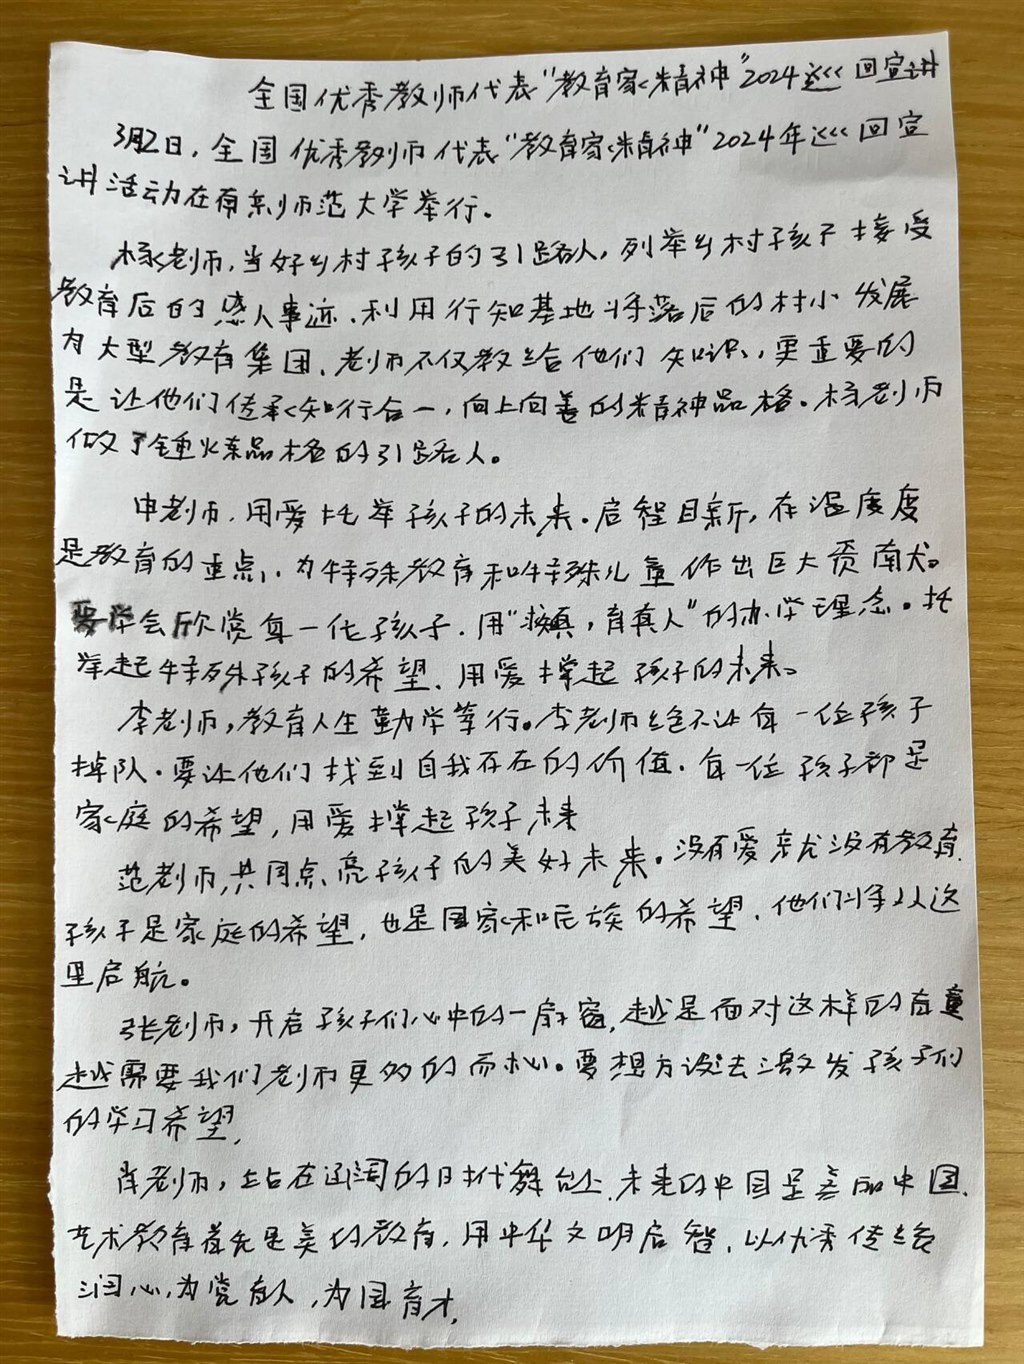 全国优秀教师代表“教育家精神”2024巡回宣讲
3月2日，全国优秀教师代表“教育家精神”2024年巡回宣
讲活动在南京师范大学举行。
杨老师，当好乡村孩子的引路人，列举乡村孩子接受
教育后的感人事迹、利用行知基地将落后的村小发展
为大型教育集团、老师不仅教给他们知识，更重要的
是让他们传承知行合一，向上向善的精神品格。杨老师
做了锤炼品格的引路人。
申老师，用爱托举孩子的未来。启程目新，在温度度
是教育的重点，为特殊教育和特殊儿童作出巨大贡献。
要学会欣赏每一位孩子，用“求真，育真人”的办学理念。托
举起特殊孩子的希望、用爱撑起孩子的未来。
李老师，教育人生勤学笃行。李老师绝不让每一位孩子
掉队。要让他们找到自我存在的价值，每一位孩子都是
家庭的希望，用爱撑起孩子未来
范老师，共同点亮孩子的美好未来。没有爱就没有教育，
孩子是家庭的希望，也是国家和民族的希望，他们将从这
里启航。
张老师，开启孩子们心中的一扇窗，越是面对这样的
越需要我们老师更多的耐心。要想方设法激发孩子们
的学习希望，
肖老师，站在辽阔的时代舞台上，未来的中国是美丽中国，
艺术教育首先是美的教育，用中华文明启智，以优秀传给
润心，为党育人，为国育才，